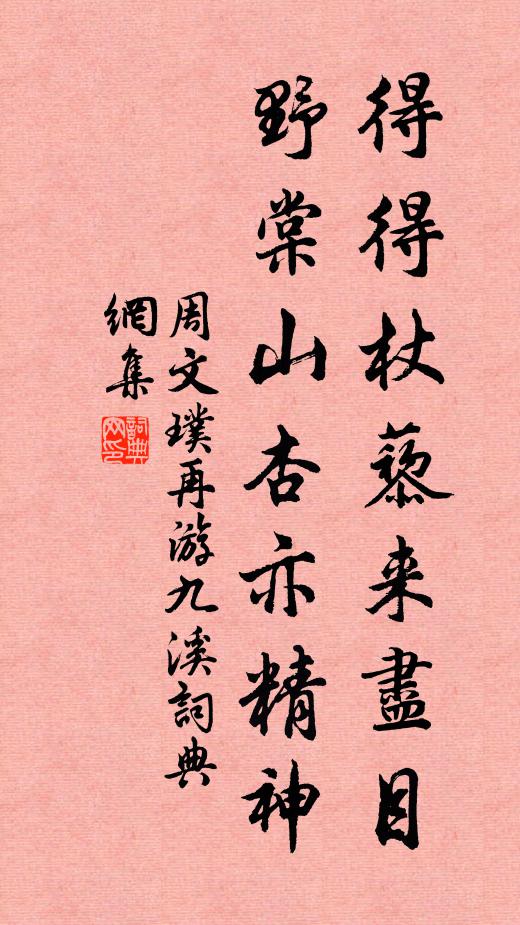 得得杖藜来盡目
野棠山杏亦精神
周文璞再游九溪詞典
網集
詞典
网印